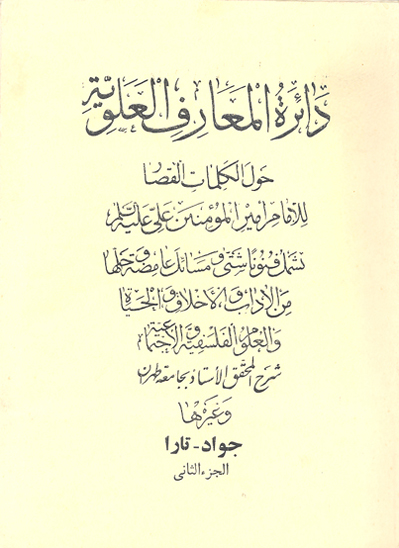 دَائرَةُ الْمَعَارِفِ الْعَلَوِيَّةِ
حَولَ الكَلِمَاتِ القِصَار
لِلإمَامِ أميرِ المُؤمِنينَ عَلىّ عَلَيهِ السَّلام
تَشمَلُ فُنُونًا شَتّى وَمَسَائلَ غَامِضَة وَحَلّهَا
مِنَ الآدَابِ وَالأَخلَاقِ وَالحَيَاةِ
وَالعُلُومِ الفَلسَفِيَّةِ وَالاجْتِمَاعِيَّةِ
شَرحُ المُحَقّقِ الأُستَاذِ بجَامِعَةِ طِهرَان
وَغَيرِهَا
جواد - تارا
الجزء الثانى